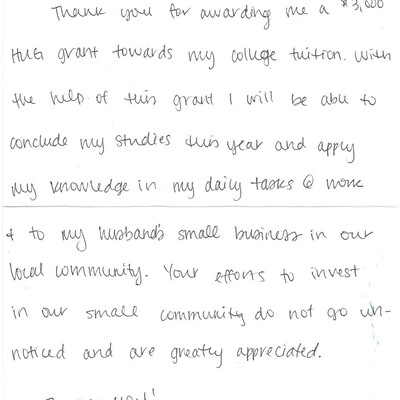 Thank you for awarding me a $3,000
HUG grant towards my college tuition. With
the help of this grant I will be able to
conclude my studies this year and apply
my knowledge in my daily tasks @ work
& to my husband's small business in our
local community. Your efforts to invest
in our small community do not go un-
noticed and are greatly appreciated.